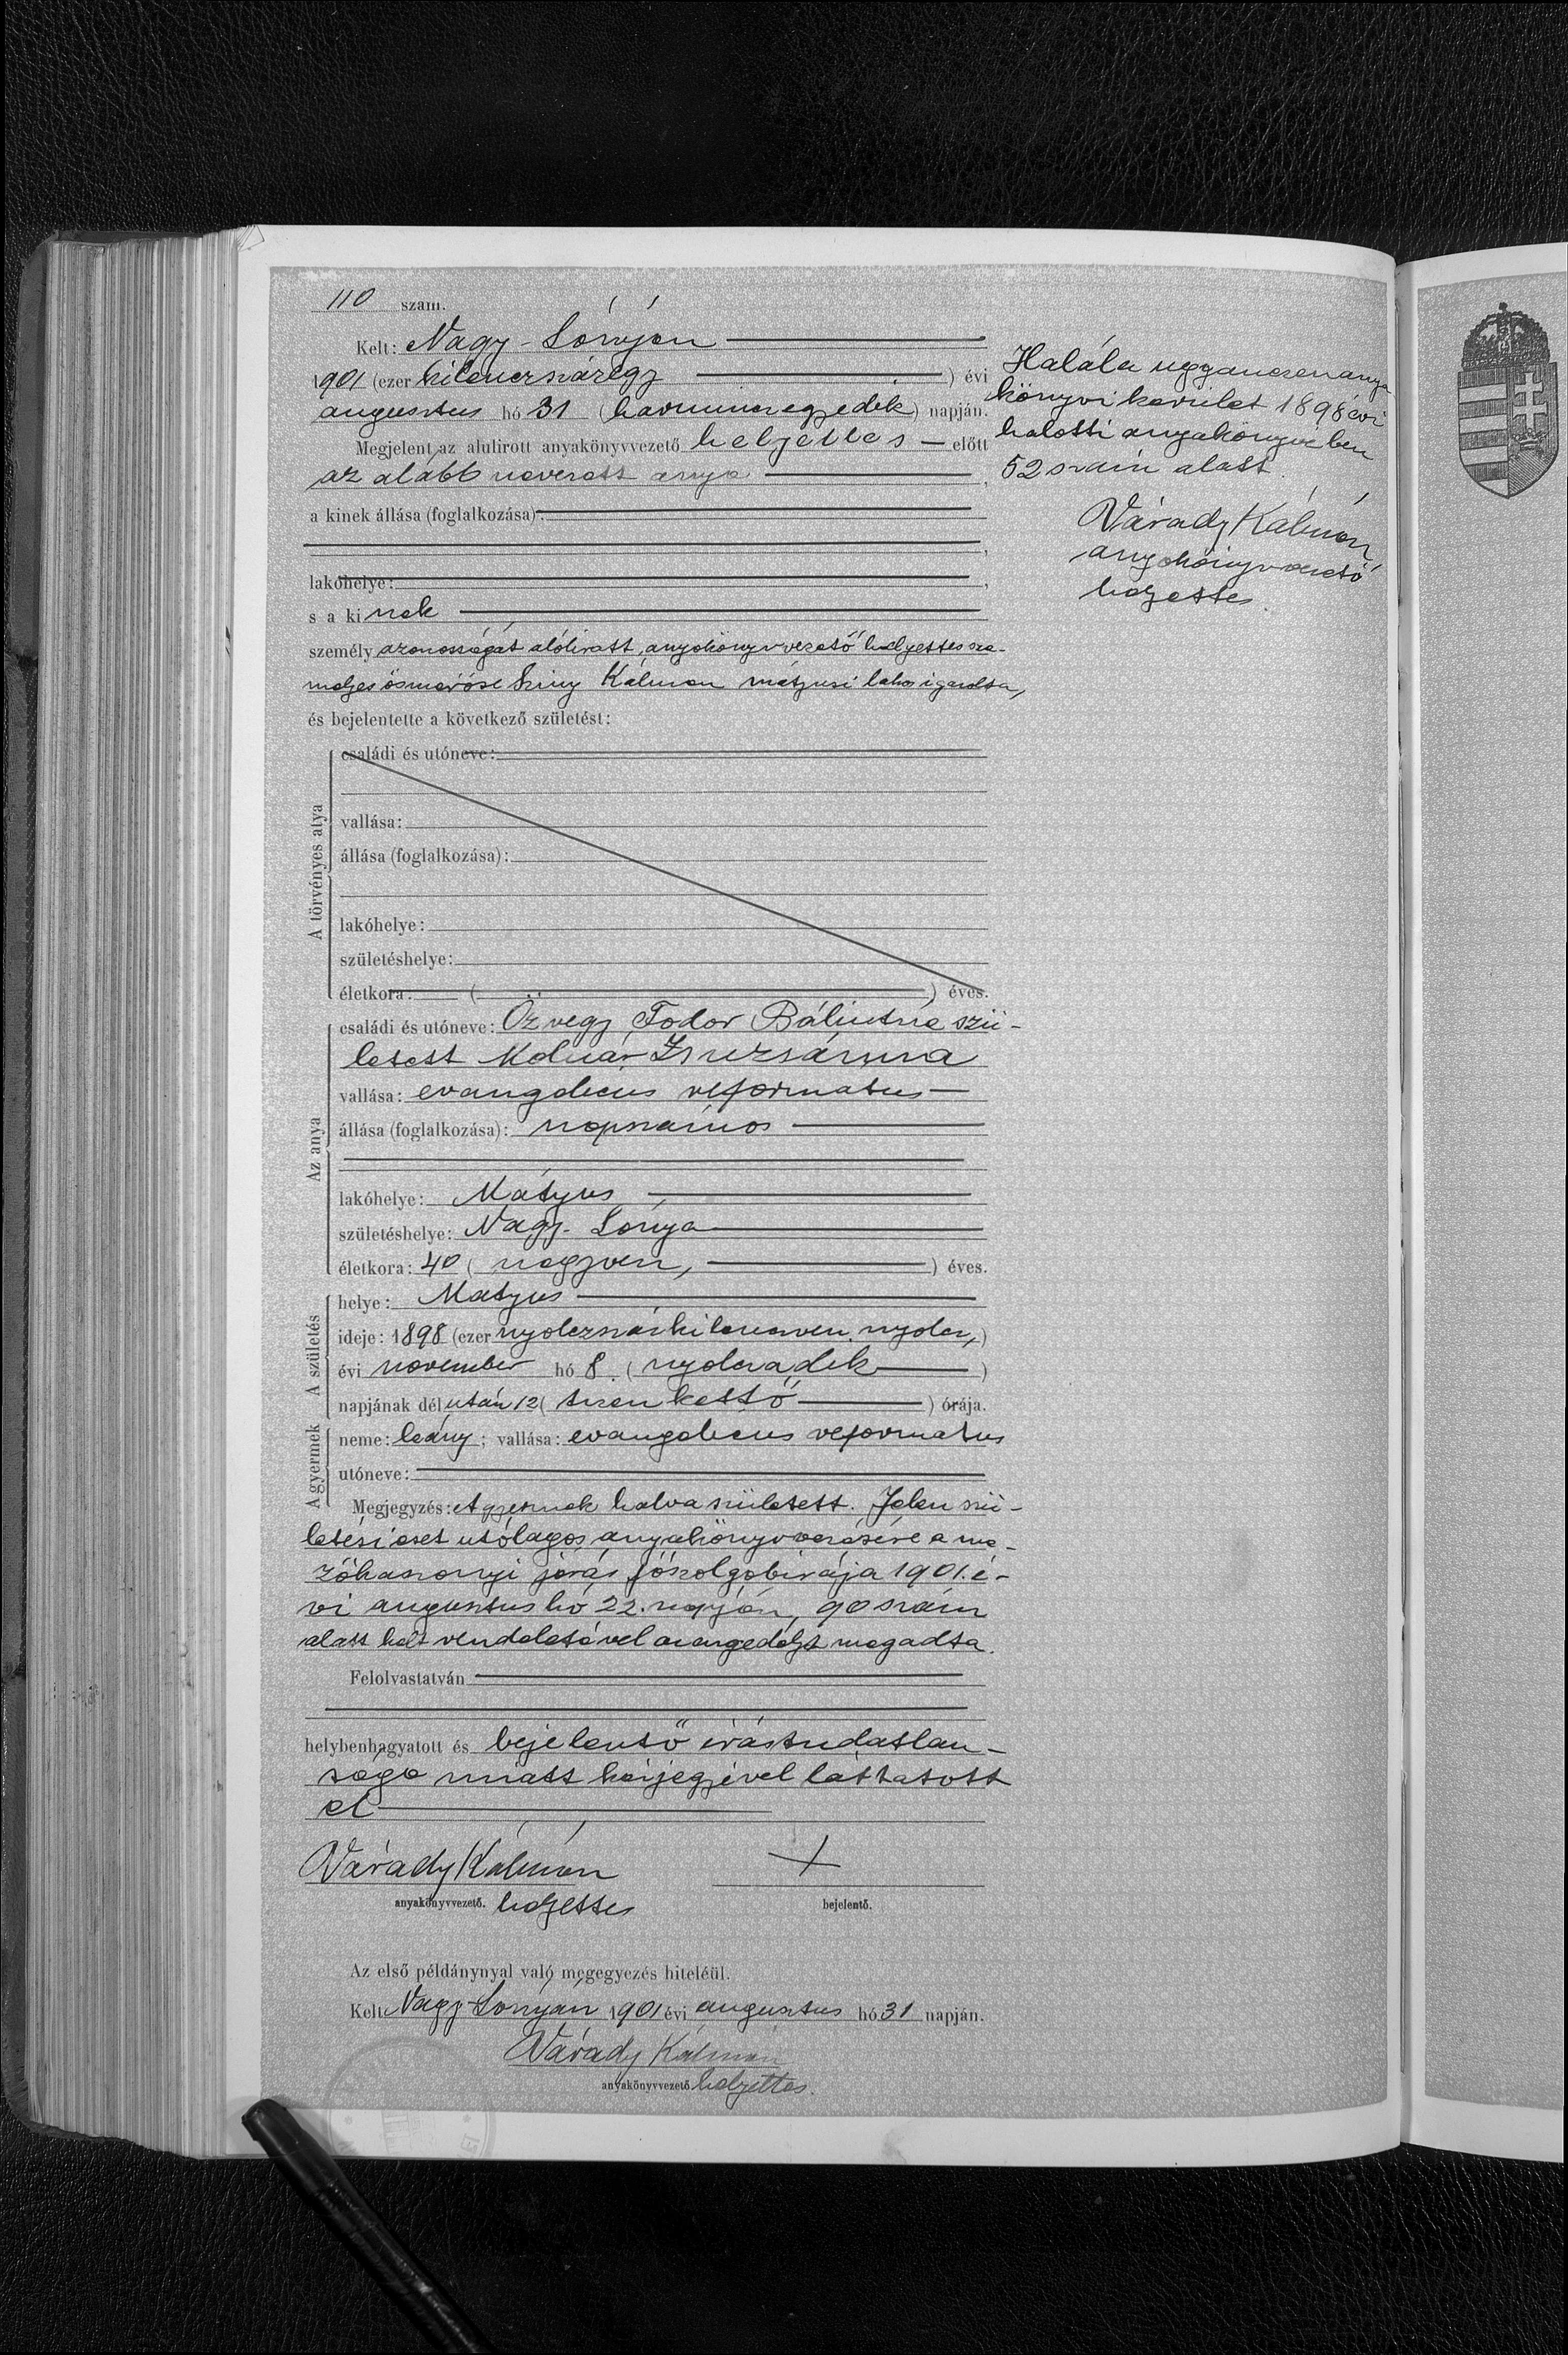 110 szám.
Kelt: Nagy-Lónyán
1901 (ezer kilenczszázegy) évi
augusztus hó 31 (harminczegyedik) napján.
Megjelent az alulirott anyakönyvvezető helyettes előtt
az alább nevezett anya,
a kinek állása (foglalkozása):
lakóhelye:
s a kinek
személyazonosságát alólirott anyakönyvvezető helyettes sze-
mélyes ösmerőse Kálmán mátyusi lakos igazolta,
és bejelentette a következő születést:
A törvényes atya
családi és utóneve:
vallása:
állása (foglalkozása):
lakóhelye:
születéshelye:
életkora: ( ) éves.
Az anya
családi és utóneve: Özvegy Fodor Bálintné szü-
letett Molnár Zsuzsánna
vallása: evangelicus reformatus
állása (foglalkozása): napszámos
lakóhelye: Mátyus
születéshelye: Nagy-Lónya
életkora: 40 (negyven,) éves.
A születés
helye: Mátyus
ideje: 1898 (ezer nyolczszázkilenczven nyolcz,)
évi november hó 8. (nyolczadik)
napjának délután 12 (tizenkettő) órája.
A gyermek
neme: leány; vallása: evangelicus reformatus
utóneve:
Megjegyzés: A gyermek halva született. Jelen szü-
letési eset utólagos anyakönyvezésére a me-
zőkaszonyi járás főszolgabirája 1901. é-
vi augusztus hó 22. napján, 90 szám
alatt kelt rendeletével az engedélyt megadta.
Felolvastatván
helybenhagyatott és bejelentő irástudatlan-
sága miatt kézjegyével láttatott
el
Várady Kálmán +
anyakönyvvezető. helyettes bejelentő.
Az első példánynyal való megegyezés hiteléül.
Kelt Nagy-Lónyán 1901 évi augusztus hó 31 napján.
Várady Kálmán
anyakönyvvezető helyettes.
Halála ugyanezen anya
könyvi kerület 1898 évi
halotti anyakönyvében
52 szám alatt
Várady Kálmán
anyakönyvvezető
helyettes.